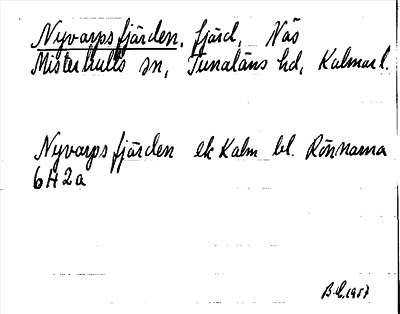 Nyvarpsfjärden, fjärd, Näs
Misterhults sn, Tunaläns hd, Kalmar l.
Nyvarpsfjärden ek Kalm bl. Rönnarna
6H2a
1957